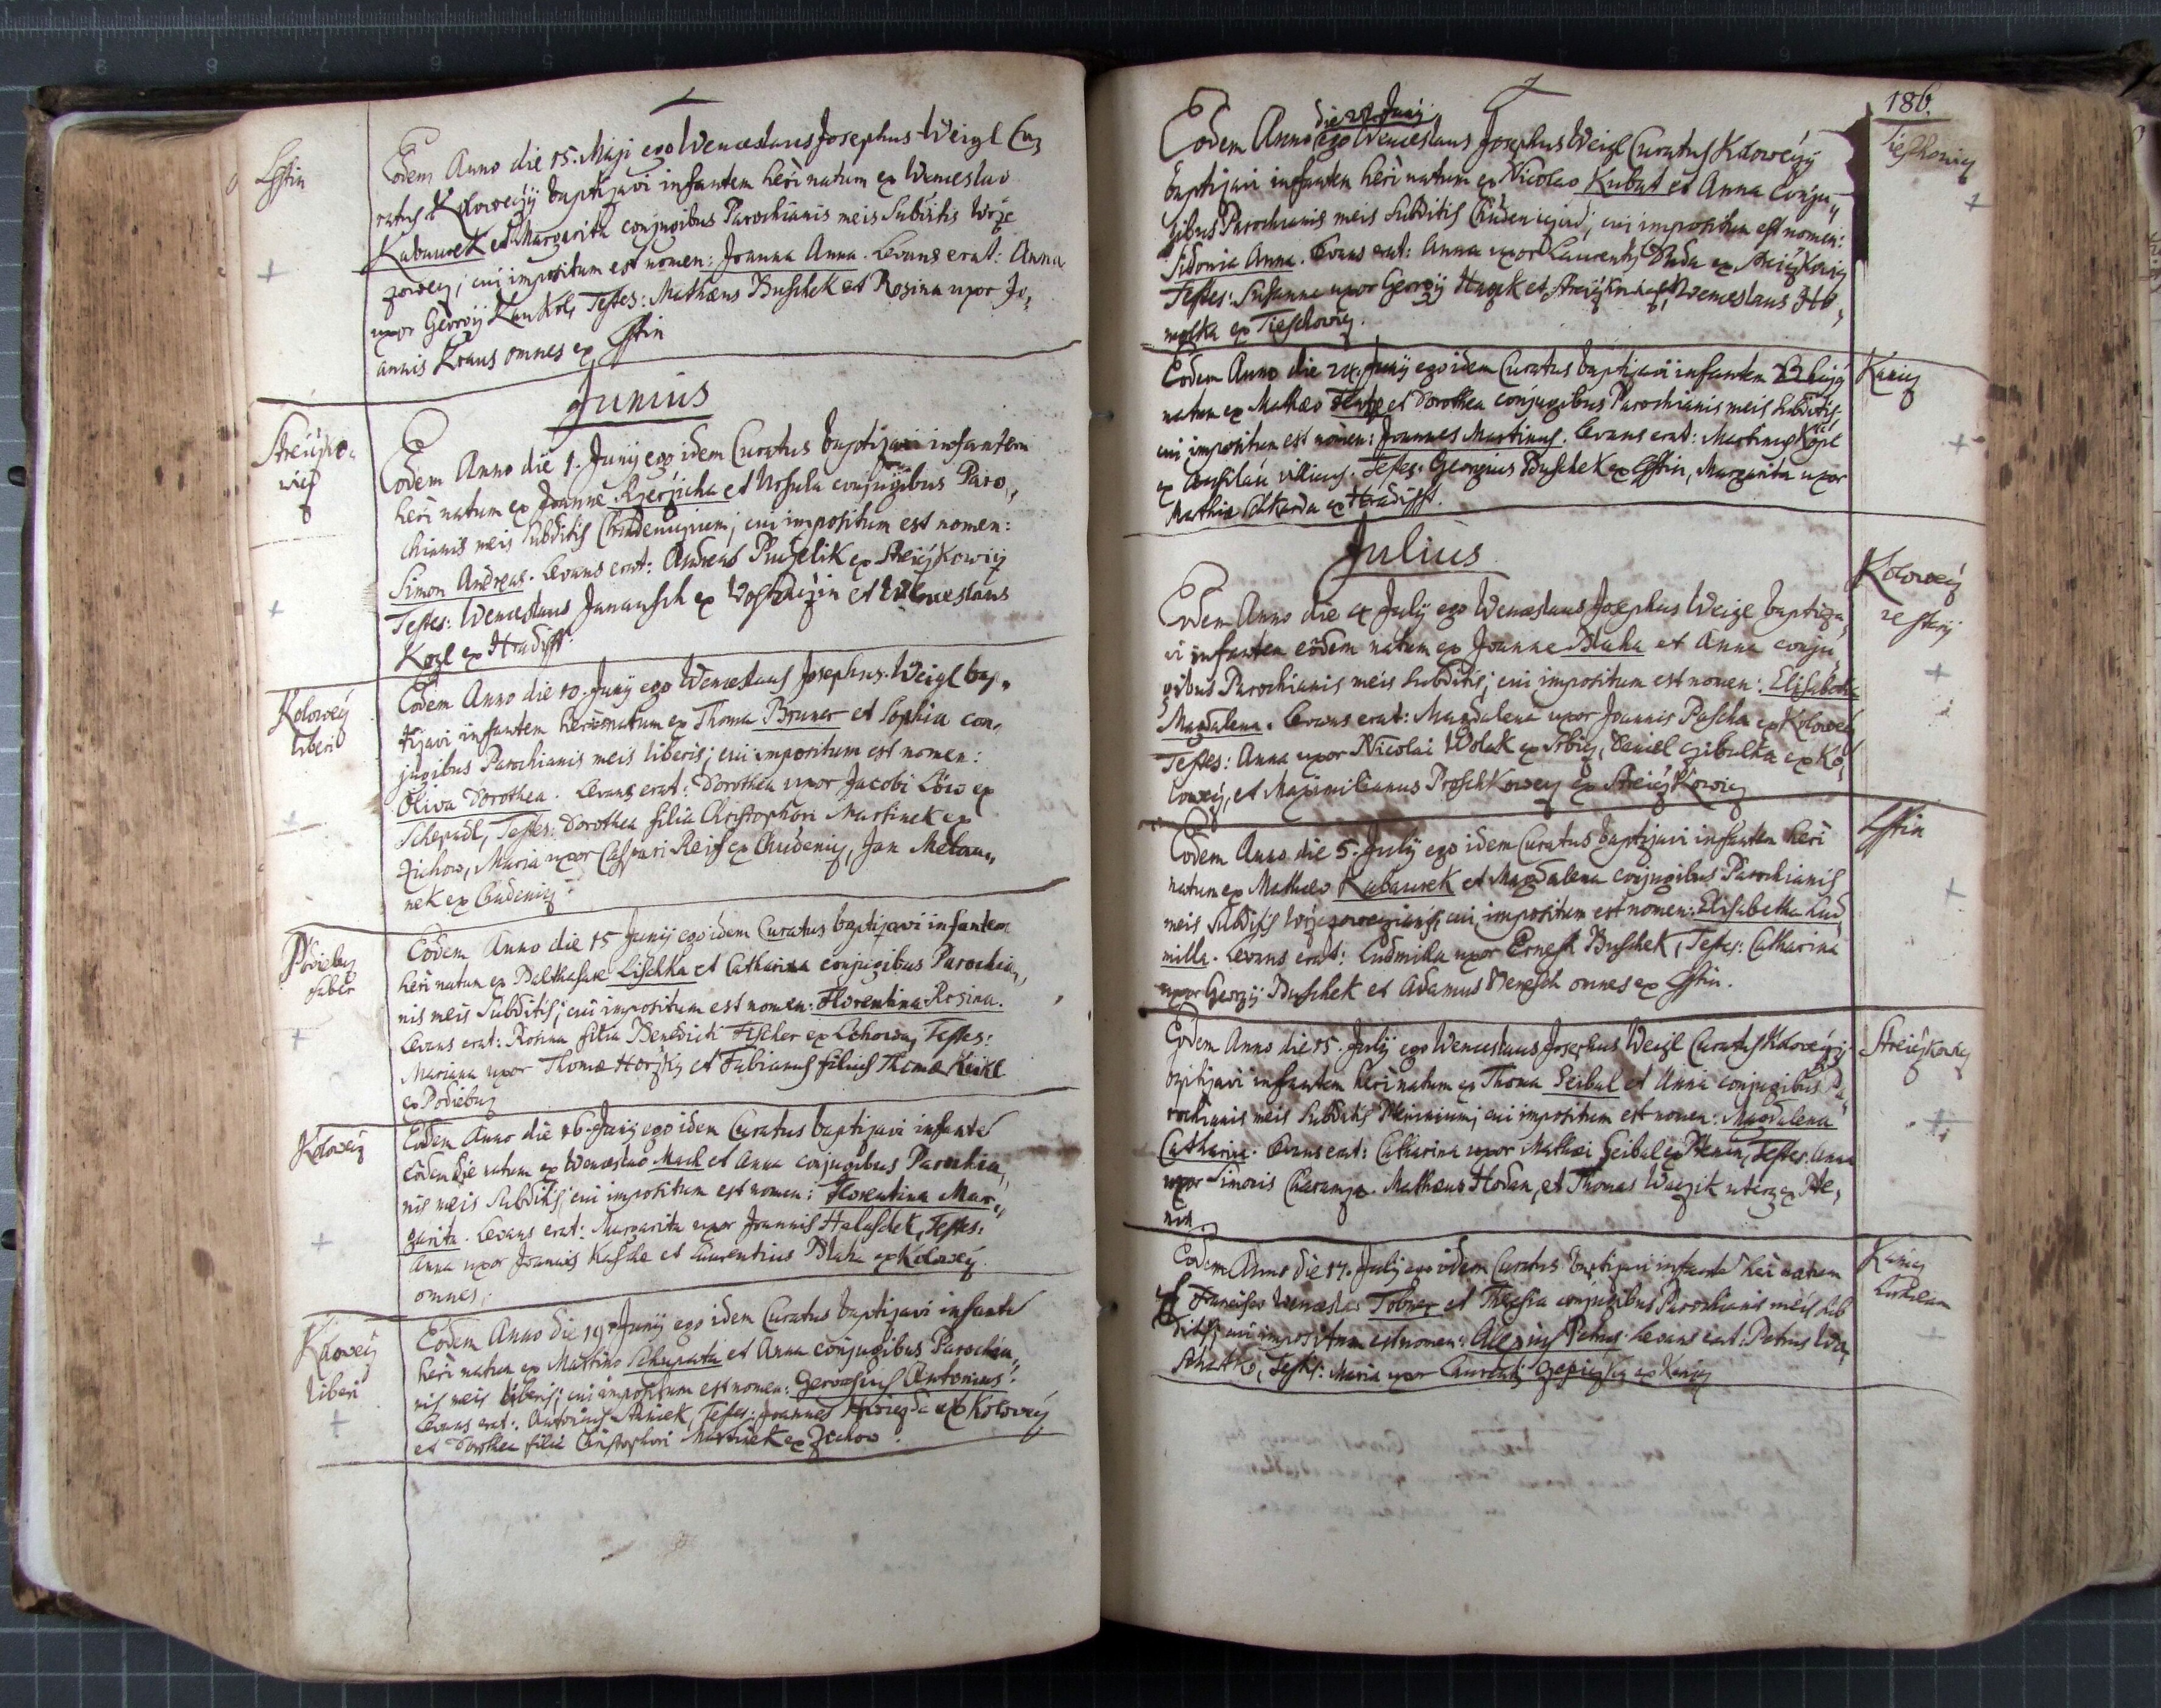 Lstin
Eodem Anno die 15. Maji ego Wenceslaus Josephus Weigl Cu,
ratus Kolowecij baptizavi infantem heri natum ex Wenceslao
Kabaurek et Margarita conjugibus Parochianis meis Subditis Wrze
zowen; cui impositum est nomen: Joanna Anna. Levans erat: Anna
uxor Georgij Kaukol, Testes: Mathæus Buschek et Rosina uxor Jo,
annis Kraus omnes ex Lstin
Junius
Streiczko,
wicz
Eodem Anno die 1. Junij ego idem Curatus baptizavi infantem
heri natum ex Joanne Rzerzicha et Ursula conjugibus Paro,,
chianis meis Subditis Chudenicium; cui impositum est nomen:
Simon Andreas. Levans erat: Andreas Puczelik ex Streiczkowicz
Testes: Wenceslaus Janausch ex Wostraczin et Wenceslaus
Kozl ex Hradisst
Kolowecz
liberi
Eodem Anno die 10. Junij ego Wenceslaus Josephus Weigl bap,,
tizavi infantem heri natum ex Thoma Bruner et Sophia con,
jugibus Parochianis meis liberis; cui impositum est nomen:
Oliva Dorothea. Levans erat: Dorothea uxor Jacobi Löw ex
Schepadl, Testes: Dorothea filia Christophori Martinek ex
Zichow, Maria uxor Caspari Reif ex Chudenicz, Jan Melau,,
nek ex Chudenicz
Podiebuz
faber
Eodem Anno die 15 Junij ego idem Curatus baptizavi infantem
heri natum ex Balthasare Lischka et Catharina conjugibus Parochia,,
nis meis Subditis; cui impositum est nomen: Florentina Rosina.
Levans erat: Rosina filia Benedicti Fischer ex Testes:
Mariana uxor Thomæ et Fabianus filius Thomæ
ex Podiebuz
Kolowecz
Eodem Anno die 16. Junij ego idem Curatus baptizavi infante
eodem die natum ex Wenceslao Mach et Anna conjugibus Parochia,,
nis meis Subditis; cui impositum est nomen: Florentina Mar,,
garita. Levans erat: Margarita uxor Joannis Haluschek, Testes:
Anna uxor Joannis Kasske et Laurentius Blaha ex Kolowecz
omnes.
Kolowecz
liberi
Eodem Anno die 19. Junij ego idem Curatus baptizavi infante
heri natum ex Martino Schupata et Anna conjugibus Parochia,,
nis meis liberis; cui impositum est nomen: Gervasius Antonius.
Levans erat: Antonius Testes: Joannes ex Kolowecz
et Dorothea filia Christophori Martinek ex Zichow.
186.
Tieschowicz
die 21 Junij
Eodem Anno ego Wenceslaus Josephus Weigl Curatus Kolowecij
baptizavi infantem heri natum ex Nicolao Kubat et Anna Conju,,
gibus Parochianis meis Subditis cui impositum est nomen:
Sidonia Anna. Levans erat: Anna uxor Laurentij Duda ex Streiczkowicz
Testes: Susanna uxor Georgij et Wenceslaus Ho,
molka ex Tieschowicz.
Kanicz
Eodem Anno die 24 Junij ego idem Curatus baptizavi infantem 22 hujus
natum ex Mathæo et Dorothea conjugibus Parochianis meis Subditis
cui impositum est nomen: Joannes Martinus. Levans erat: Martinus Kozl
ex villicus. Testes: Georgius Buschek ex Lstin, Margarita uxor
Mathiæ ex Hradisst.
Julius
Kolowecz
Eodem Anno die 4 July ego Wenceslaus Josephus Weigl baptiza,
vi infantem eodem natum ex Joanne Blaha et Anna conju,
gibus Parochianis meis Subditis; cui impositum est nomen: Elisabetha
Magdalena. Levans erat: Magdalena uxor Joannis Pascha ex Kolowecz
Testes: Anna uxor Nicolai Wolak ex Daniel Czibulka ex Ko,
lowecz, et Maximilianus Proschkowey ex Streiczkowicz
Lstin
Eodem Anno die 5. July ego idem Curatus baptizavi infantem heri
natum ex Mathæo Kabaurek et Magdalena conjugibus Parochianis
meis Subditis cui impositum est nomen: Elisabetha Lud,
milla. Levans erat: Ludmilla uxor Ernest Buschek, Testes: Catharina
uxor Georgij Buschek et Adamus Benesch omnes ex Lstin.
Streiczkowicz
Eodem Anno die 15. July ego Wenceslaus Josephus Weigl Curatus Kolowecij
baptizavi infantem heri natum ex Thoma Seibal et Anna conjugibus Pa,,
rochianis meis Subditis cui impositum est nomen: Magdalena
Catharina. Levans erat: Catharina uxor Mathæi Seibal ex Testes: Anna
uxor Simonis Mathæus Hodan, et Thomas Waczik
Kanicz
Eodem Anno die 17. July ego idem Curatus baptizavi infante heri natum
Francisco Wenceslao Tobner et Theresia conjugibus Parochianis meis Sub
ditis; cui impositum est nomen: Alexius Petrus. Levans erat: Petrus
Testes: Maria uxor Laurentij ex Kanicz